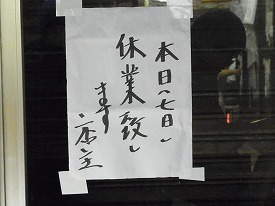 本日(七日)
休業致し
ます
店主